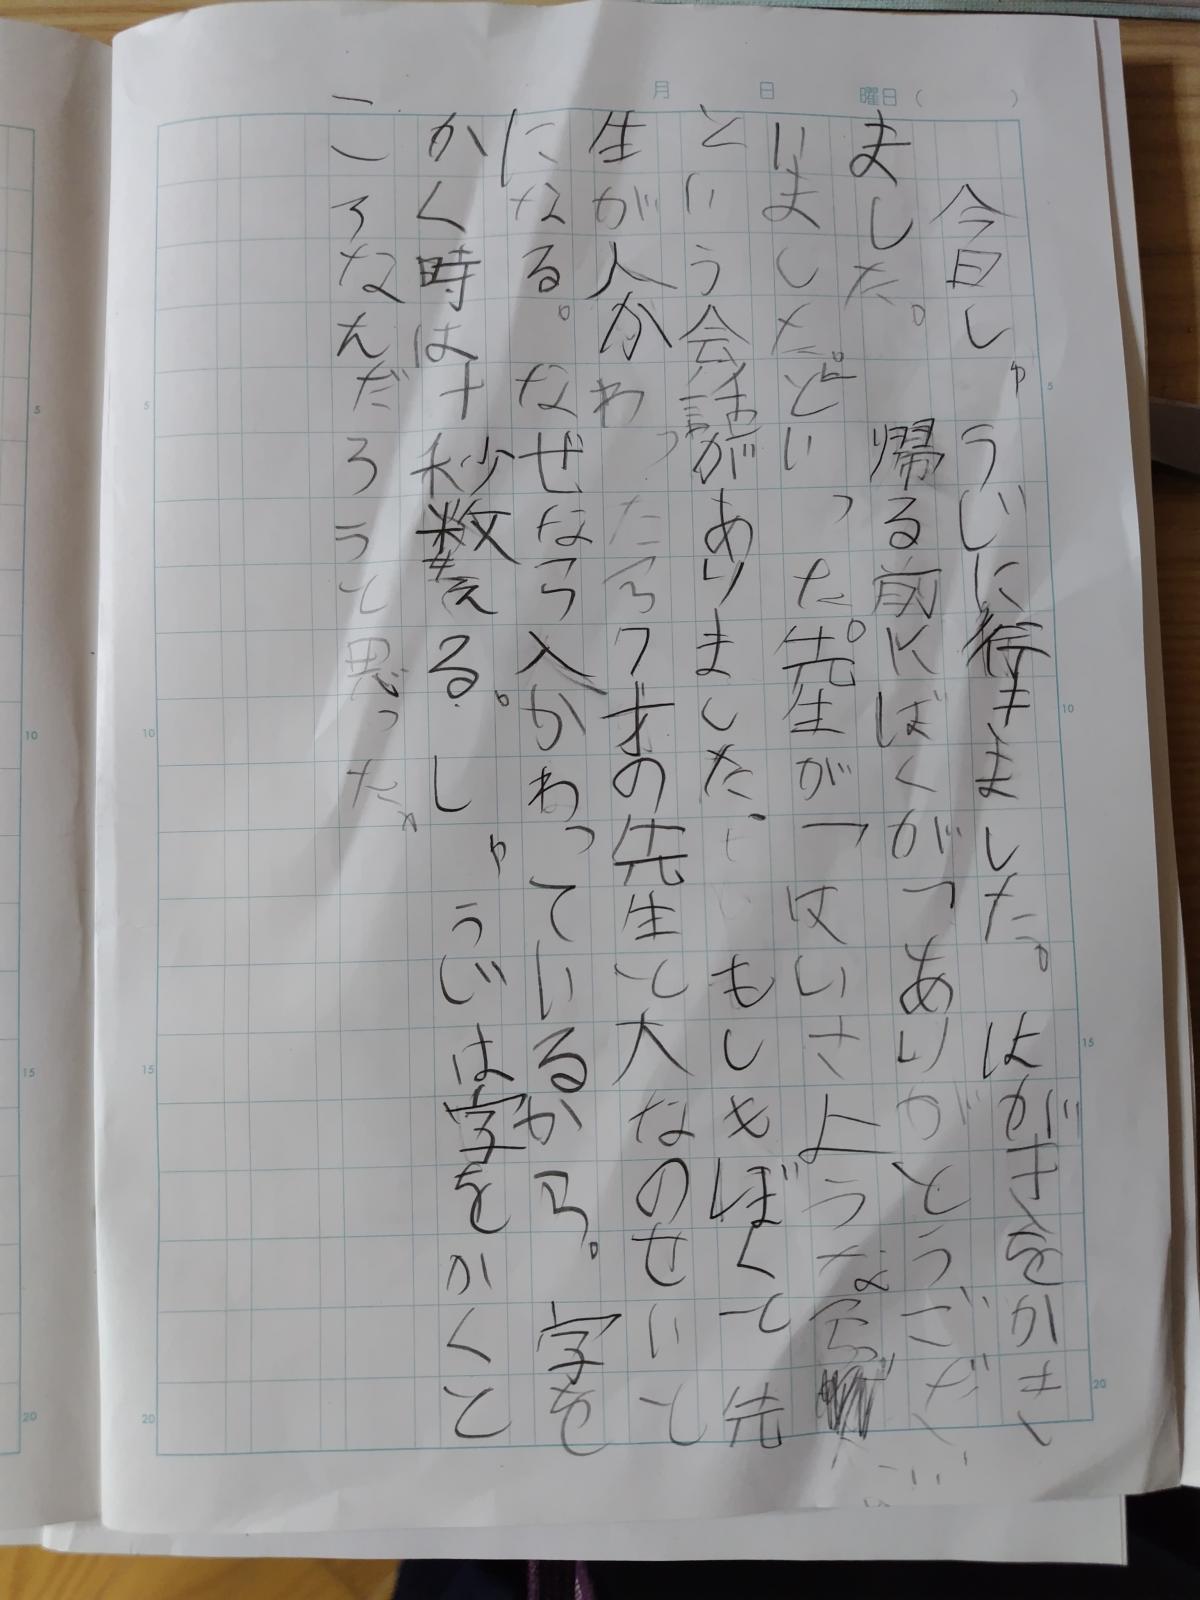 月 日 曜日( )
今日しゅうじに行きました。はがきをかき
ました。帰る前にぼくが「ありがとうござ
いました。」といった。先生が「いさような
という会話がありました もしもぼくと先
生が入かわったら7才の先生と大なのせいと
になる。なぜなら入かわっているから。字を
かく時は十秒数える。しゅうじは字をかくと
ころなんだろうと思った。
5
10
15
20
5
10
15
20
5
10
15
20